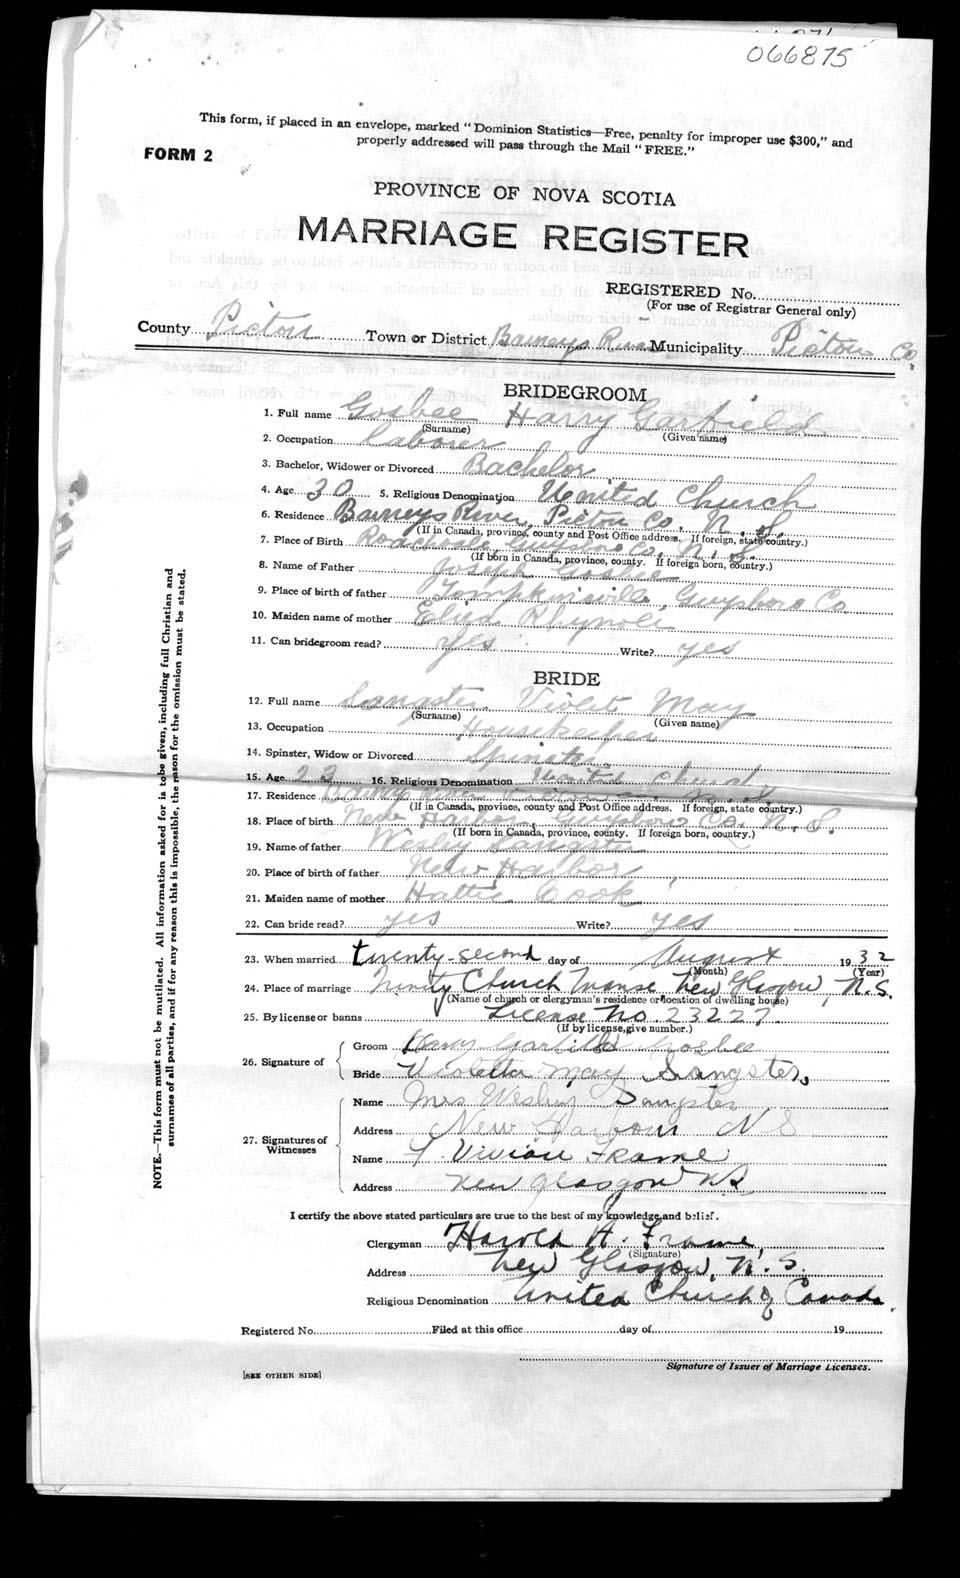 066875
This form, if placed in an envelope, marked "Dominion Statistics—Free, penalty for improper use $300," and
properly addressed will pass through the Mail "FREE."
FORM 2
PROVINCE OF NOVA SCOTIA
MARRIAGE REGISTER
REGISTERED No.
(For use of Registrar General only)
County Pictou Town or District Barneys River Municipality Pictou Co.
BRIDEGROOM
1. Full name Gosbee Harry Garfield
(Surname) (Given name)
2. Occupation Laborer
3. Bachelor, Widower or Divorced Bachelor
4. Age 30 5. Religious Denomination United Church
6. Residence Barneys River, Pictou Co, N.S.
(If in Canada, province, county and Post Office address. If foreign, state country.)
7. Place of Birth Guysboro Co, N.S.
(If born in Canada, province, county. If foreign born, country.)
8. Name of Father Joseph Gosbee
9. Place of birth of father Guysboro Co
10. Maiden name of mother
11. Can bridegroom read? Yes Write? yes
BRIDE
12. Full name Sangster Violet May
(Surname) (Given name)
13. Occupation Housekeeper
14. Spinster, Widow or Divorced Spinster
15. Age 23 16. Religious Denomination United Church
17. Residence Barneys River
(If in Canada, province, county and Post Office address. If foreign, state country.)
18. Place of birth New Harbor, Guysboro Co. N.S.
(If born in Canada, province, county. If foreign born, country.)
19. Name of father Wesley Sangster
20. Place of birth of father New Harbor
21. Maiden name of mother Hattie Cook
22. Can bride read? yes Write? yes
23. When married twenty-second day of August 1932
(Month) (Year)
24. Place of marriage Trinity Church Manse New Glasgow, N.S.
(Name of church or clergyman's residence or location of dwelling house)
25. By license or banns License No. 23227
(If by license, give number.)
26. Signature of
Groom Harry Garfield Gosbee
Bride Violetta May Sangster
27. Signatures of Witnesses
Name Mrs Wesley Sangster
Address New Harbour NS
Name F. Vivian Frame
Address New Glasgow NS
I certify the above stated particulars are true to the best of my knowledge and belief.
Clergyman Harold A. Frame
(Signature)
Address New Glasgow, N.S.
Religious Denomination United Church of Canada.
Registered No. Filed at this office day of 19
Signature of Issuer of Marriage Licenses.
[SEE OTHER SIDE]
NOTE.—This form must not be mutilated. All information asked for is to be given, including full Christian and
surnames of all parties, and if for any reason this is impossible, the reason for the omission must be stated.